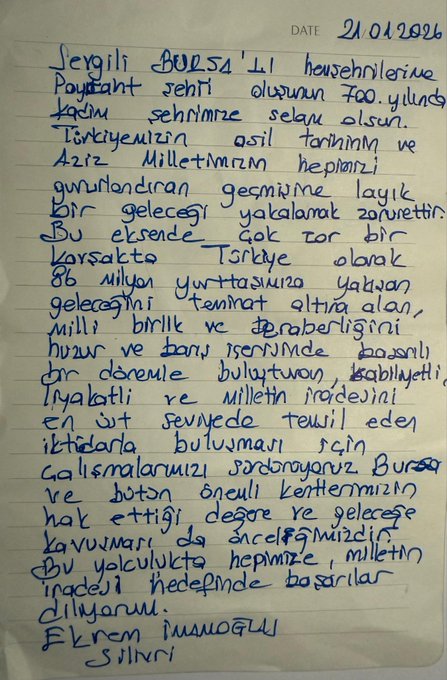 DATE 21.01.2026
Sevgili BURSA'LI hemşehrilerime
Payitaht şehri oluşunun 700. yılında
kadim şehrimize selam olsun.
Türkiyemizin asil tarihinin ve
Aziz Milletimizin hepimizi
gururlandıran geçmişine layık
bir geleceği yakalamak zorurettir.
Bu eksende çok zor bir
kavşakta Türkiye olarak
86 milyon yurttaşımıza yakışan
geleceğini teminat altına alan,
milli birlik ve beraberliğini
huzur ve barış içerisinde başarılı
bir dönemle buluşturan, kabiliyetli,
liyakatli ve milletin iradesini
en üst seviyede temsil eden
iktidarla buluşması için
çalışmalarımızı sürdürüyoruz Bursa
ve bütün önemli kentlerimizin
hak ettiği değere ve geleceğe
kavuşması da önceliğimizdir.
Bu yolculukta hepimize, milletin
iradesi hedefinde başarılar
diliyorum.
Ekrem İMAMOĞLU
Silivri